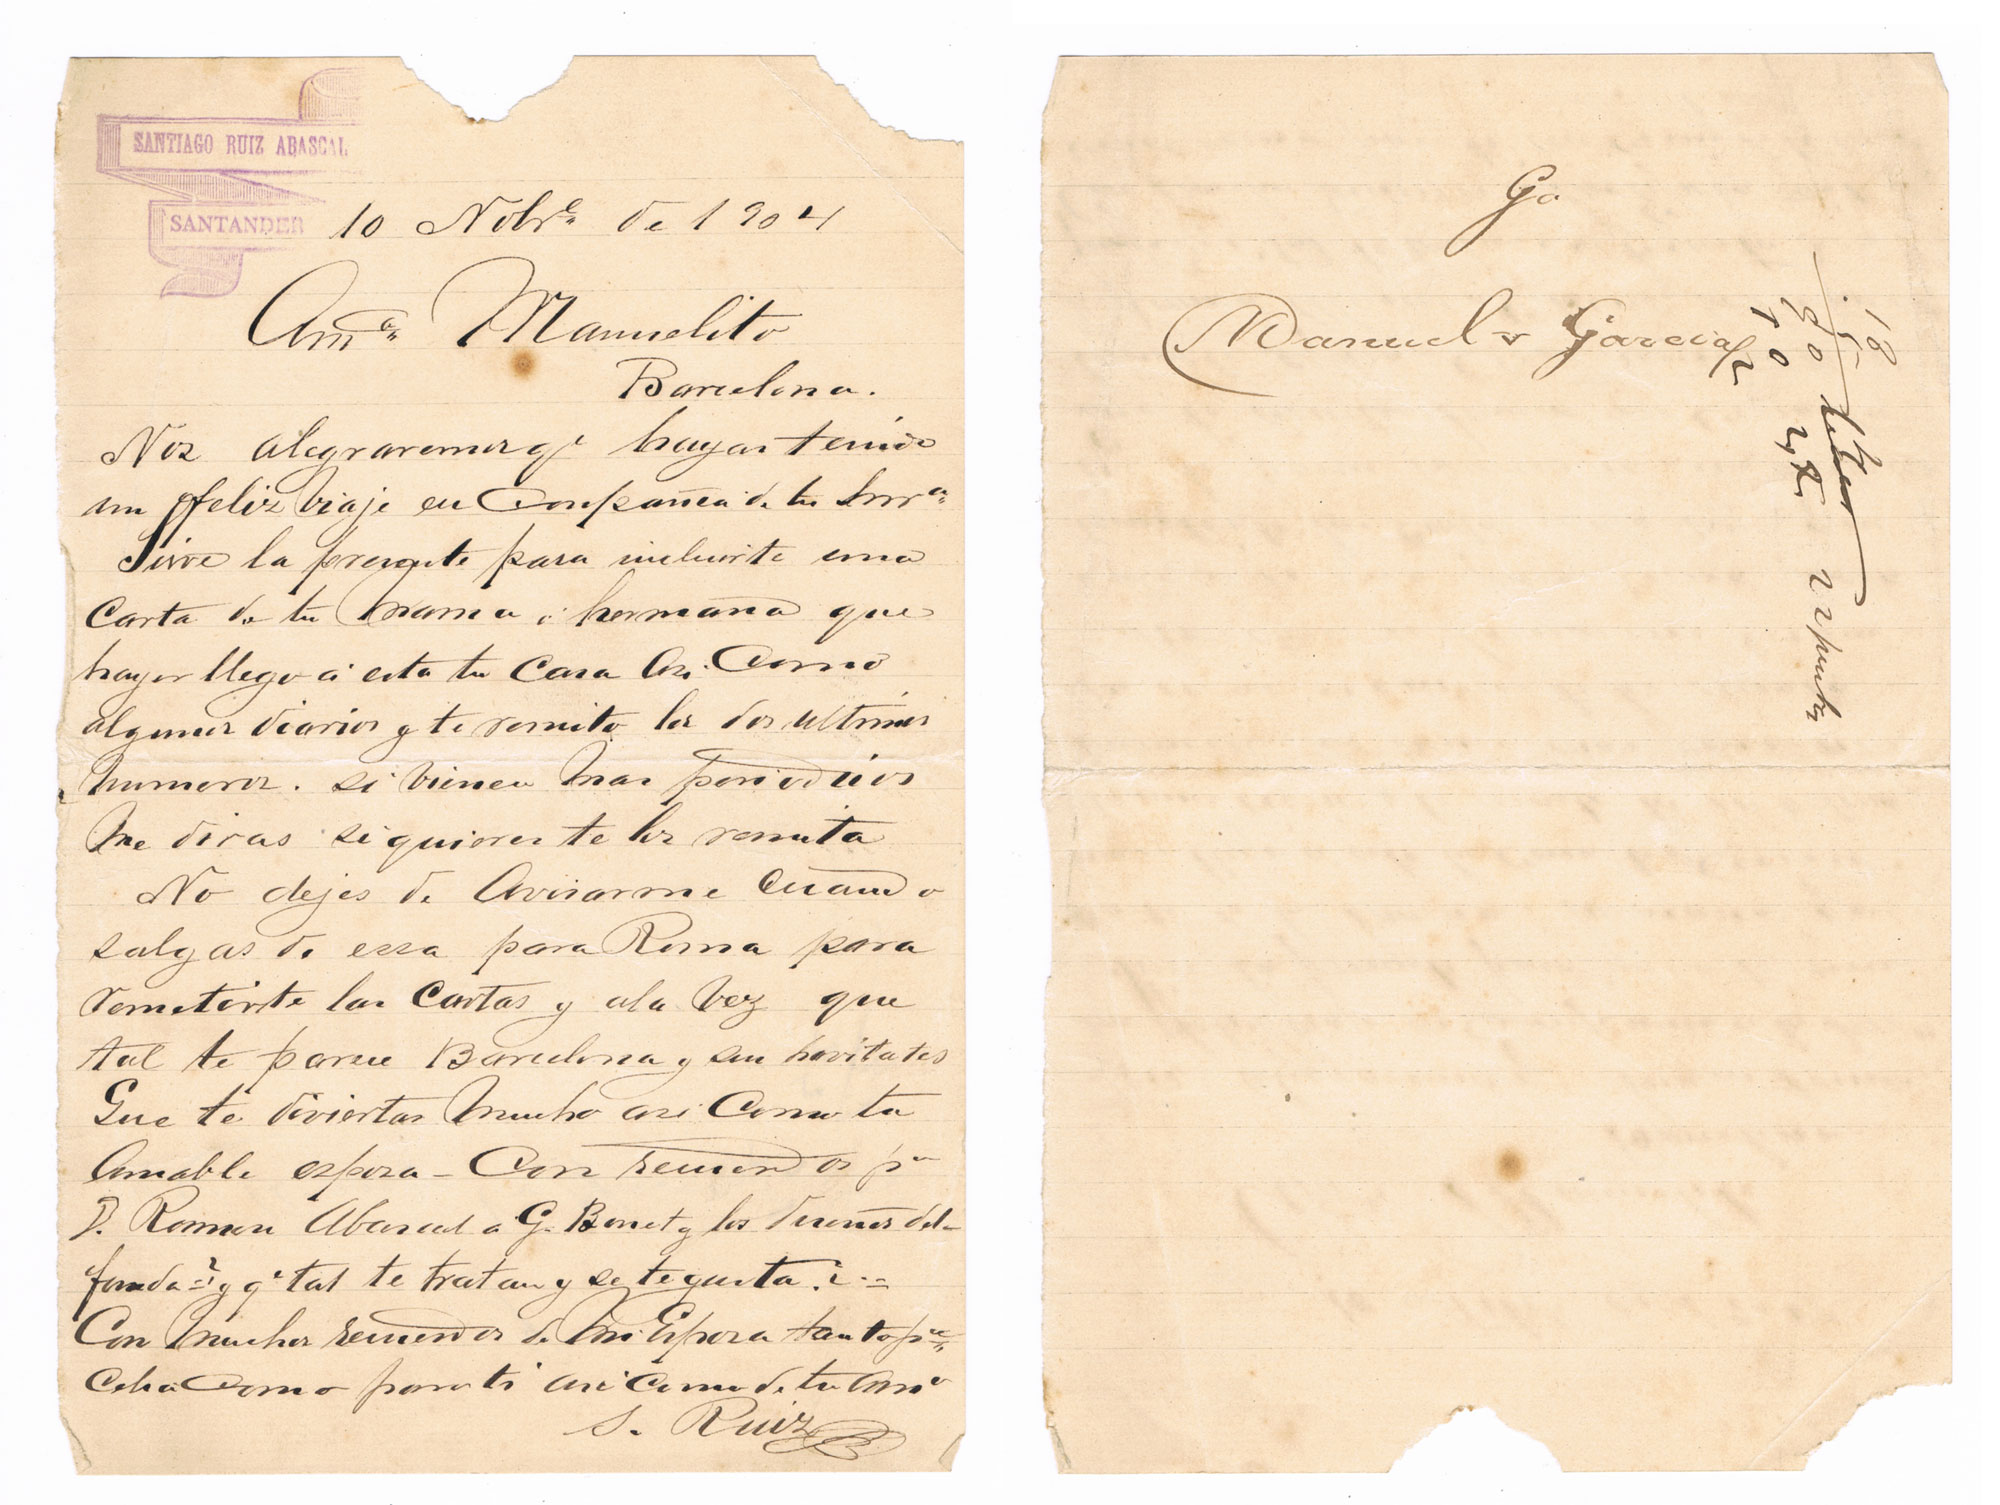 SANTIAGO RUIZ ABASCAL
SANTANDER
10 Nobre de 1904
Amo Manuelito
Barcelona.
Nos alegraremos qe hayas tenido
un feliz viaje en Conpañia de tu Snra
Sirve la presente para incluirte una
Carta de tu mama i hermana que
hayer llego á esta tu Casa Asi Como
algunos diarios y te remito los dos ultimos
numeros. si vienen mas periodicos
me diras si quieres te los remita
No dejes de Avisarme Cuando
salgas de essa para Roma para
remitirte las Cartas y ala vez que
tal te parece Barcelona y sus havitates
Que te diviertas mucho asi Como tu
Amable esposa - Con recuerdos pa
D. Ramon Abascal a G. Bonet y los dueños del
fonda y qe tal te tratan y se te gusta?
Con muchos recuerdos de mi Esposa tanto pa
Celia Como para ti asi Como de tu Amo
S. Ruiz
Go
Manuel Garcia
18